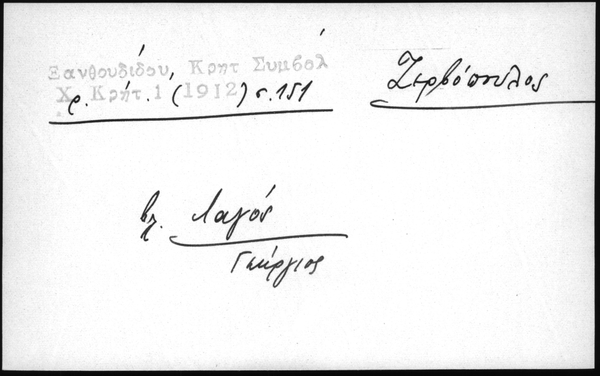 Ξανθουδίδου, Κρητ Συμβολ
Χρ. Κρήτ. 1 (1912) σ. 151
Ζερβόπουλος
βλ. Λαγός
Γεώργιος